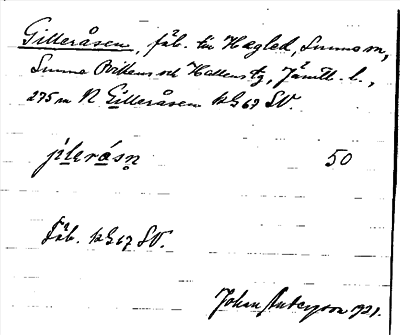 Gilleråsen, fäb. till Hagled, Sunna sn,
Sunna Vitkens och Hallens tg, Jämtl. l.,
275 m N Gilleråsen kG67 SV.
jìlerásn 50
Fäb. kG67 SV.
Johan Anderzon 1921.